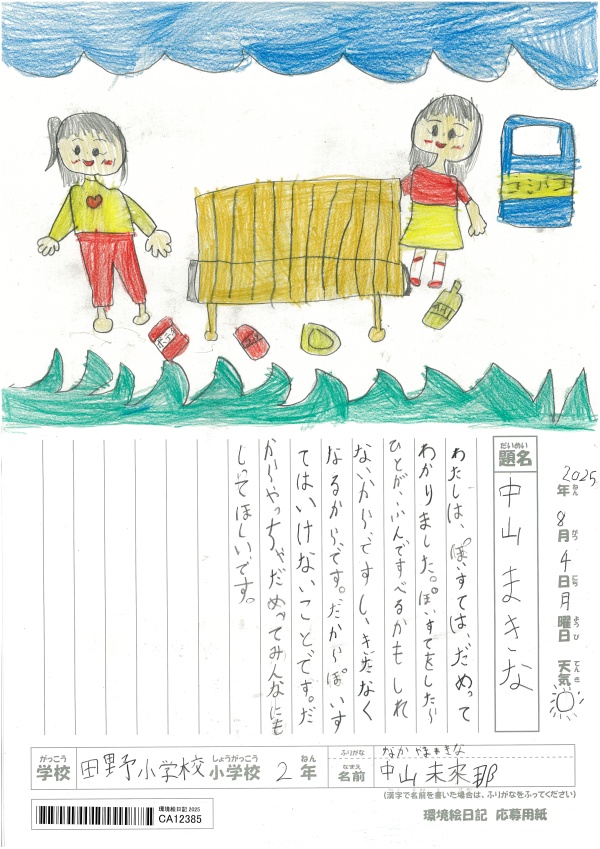 ゴミバコ
2025年 8月 4日 月曜日 天気
ねん がつ にち ようび てんき
だいめい
題名 中山 まきな
わたしは、ぽいすては、だめって
わかりました。ぽいすてをしたら
ひとが、ふんですべるかも しれ
ないから、ですし、きたなく
なるから、です。だからぽいす
てはいけないことです。だ
からやっちゃだめってみんなにも
しってほしいです。
がっこう しょうがっこう ねん
学校 田野小学校 小学校 2年
ふりがな なかやままきな
なまえ
名前 中山 未來那
(漢字で名前を書いた場合は、ふりがなをふってください)
環境絵日記 2025
CA12385
環境絵日記 応募用紙